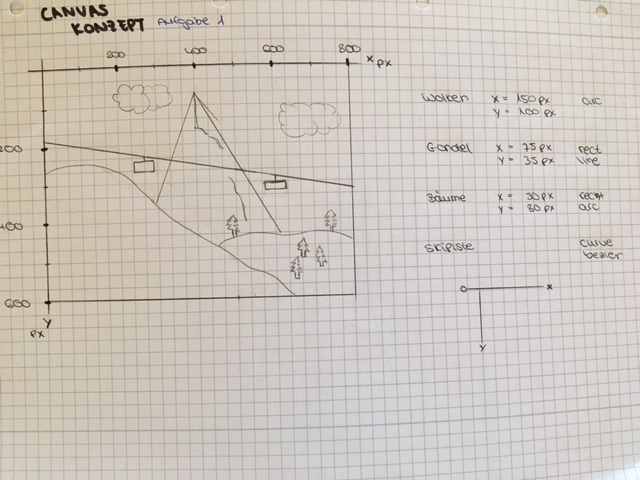 CANVAS
KONZEPT Aufgabe 1
200 400 600 800 x px
200
400
600
y
px
Wolken x = 150 px arc
y = 100 px
Gondel x = 75 px rect
y = 35 px line
Bäume x = 30 px
y = 80 px arc
Skipiste curve
bezier
0 x
y